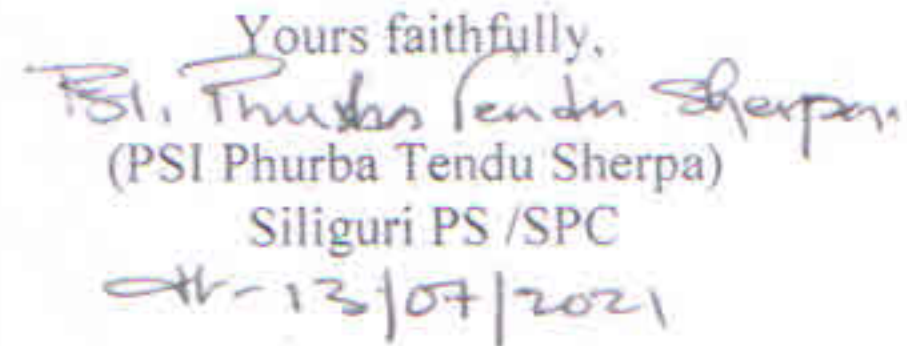 Yours faithfully,
PSI. Phurba Tendu Sherpa.
(PSI Phurba Tendu Sherpa)
Siliguri PS /SPC
dt-13/07/2021